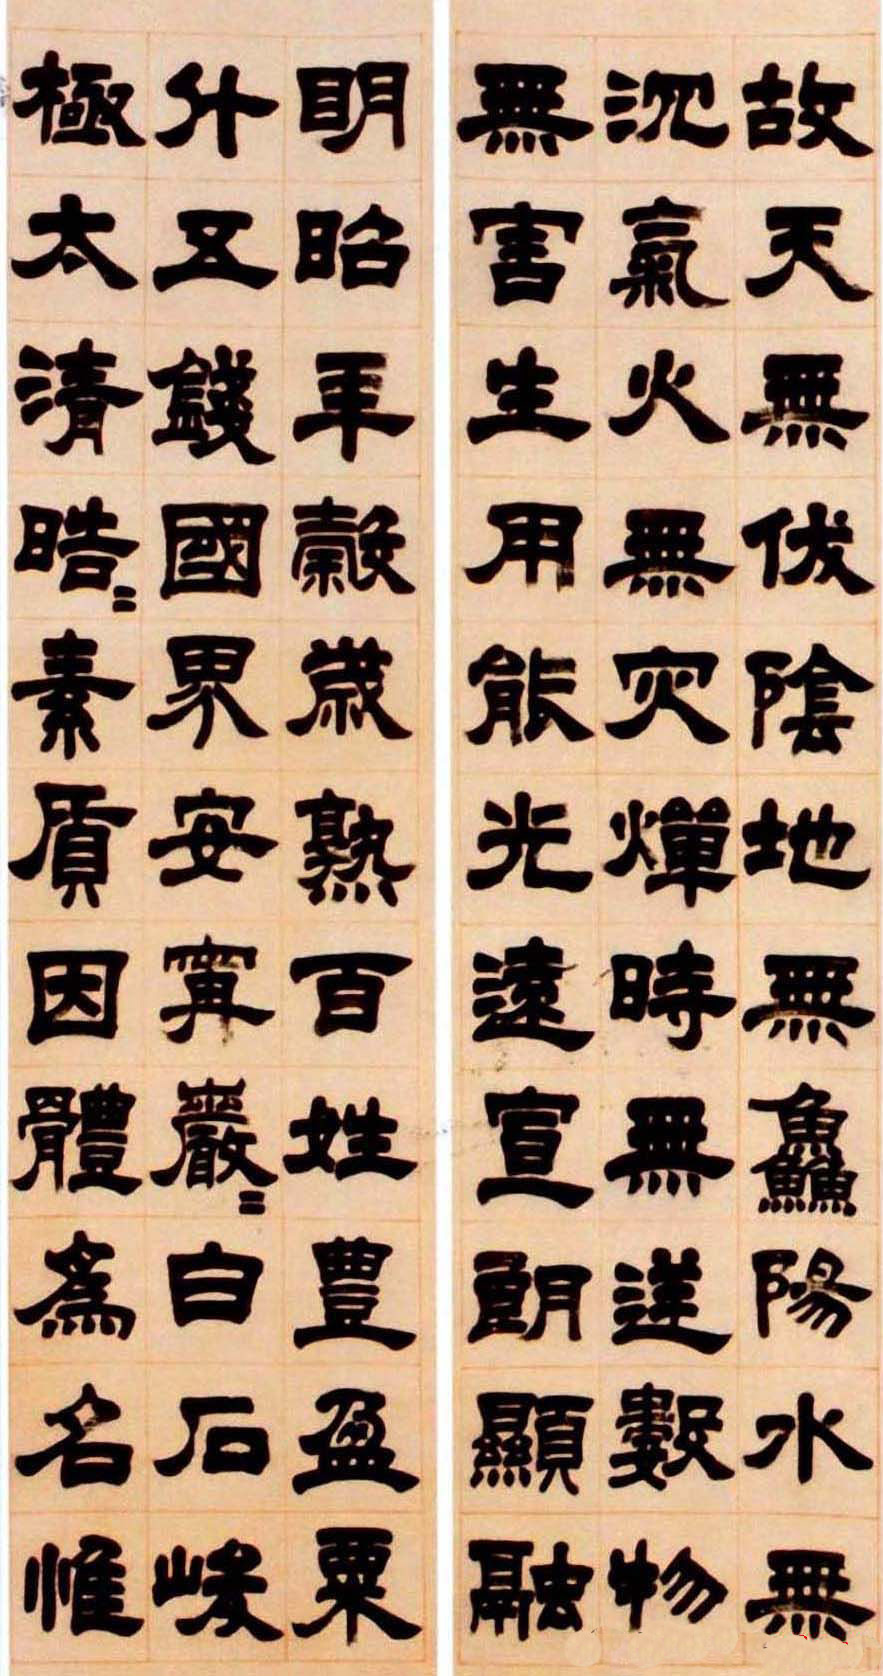 故天無伏陰地無鱻陽水無
沉氣火無灾燀時無逆數物
無害生用能光遠宣朗顯融
明昭年穀歲熟百姓豊盈粟
升五錢國界安寧巖〻白石峻
極太清晧〻素質因體為名惟